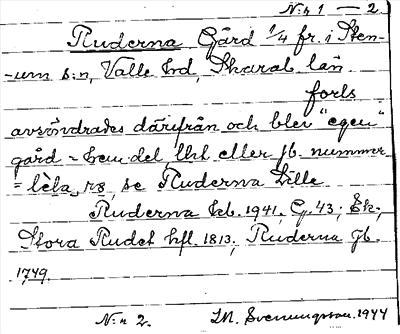 N:r 1 — 2.
Ruderna Gård 1/4 fr. i Sten-
-um s:n, Valle hd, Skarab. län.
forts
avsöndrades därifrån och blev "egen"
gård = hem.del, lht eller jb. nummer
= lèla, rs, se Ruderna Lille
Ruderna Jeb. 1941, G. 43; Ek.;
Stora Rudet hfl. 1813; Ruderna jb.
1749.
N:r 2.
I.M. Svenungsson. 1944